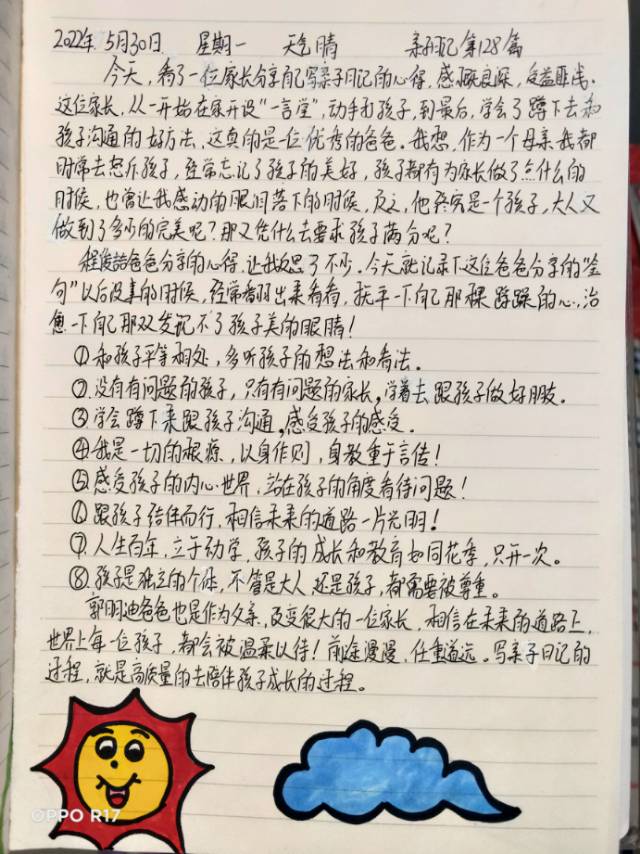 2022年 5月30日 星期一 天气晴 亲子日记第128篇
今天,看了一位家长分享自己写亲子日记的心得,感慨良深,受益匪浅。
这位家长,从一开始在家开设“一言堂”,动手打孩子,到最后,学会了蹲下去和
孩子沟通的好方法,这真的是一位优秀的爸爸。我想,作为一个母亲我都
时常去怒斥孩子,经常忘记了孩子的美好,孩子都有为家长做了点什么的
时候,也曾让我感动的眼泪落下的时候,反之,他终究是一个孩子,大人又
做到了多少的完美呢?那又凭什么去要求孩子满分呢?
程俊喆爸爸分享的心得,让我反思了不少。今天就记录下这位爸爸分享的“金
句”以后没事的时候,经常翻出来看看,抚平一下自己那颗躁躁的心,治
愈一下自己那双发现不了孩子美的眼睛!
①和孩子平等相处,多听孩子的想法和看法。
②没有有问题的孩子,只有有问题的家长,学着去跟孩子做好朋友。
③学会蹲下来跟孩子沟通,感受孩子的感受。
④我是一切的根源,以身作则,身教重于言传!
⑤感受孩子的内心世界,站在孩子的角度看待问题!
⑥跟孩子结伴而行,相信未来的道路一片光明!
⑦人生百年,立于幼学,孩子的成长和教育如同花季,只开一次。
⑧孩子是独立的个体,不管是大人还是孩子,都需要被尊重。
郭明迪爸爸也是作为父亲,改变很大的一位家长,相信在未来的道路上,
世界上每一位孩子,都会被温柔以待!前途漫漫,任重道远。写亲子日记的
过程,就是高质量的去陪伴孩子成长的过程。
OPPO R17